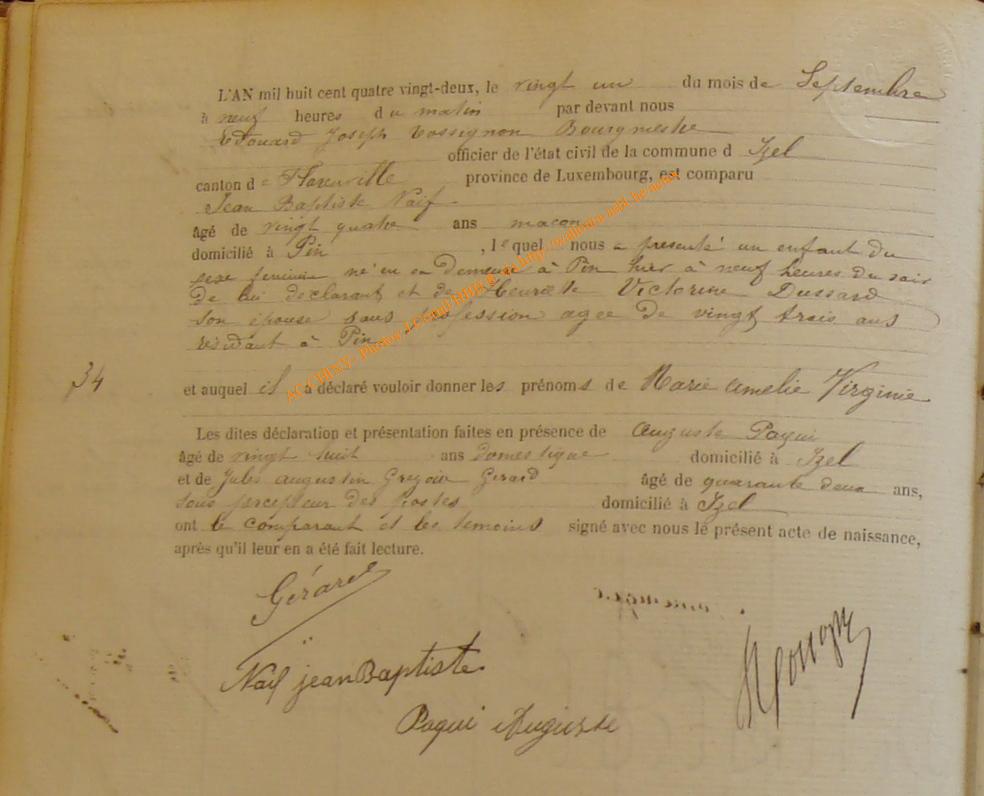 L'AN mil huit cent quatre vingt-deux, le vingt un du mois de Septembre
à neuf heures du matin par devant nous
Edouard Joseph Rossignon Bourgmestre
officier de l'état civil de la commune d Izel
canton de Florenville province de Luxembourg, est comparu
Jean Baptiste Naïf
âgé de vingt quatre ans maçon
domicilié à Pin , lequel nous a présenté un enfant du
sexe feminin né en sa demeure à Pin hier à neuf heures du soir
de lui declarant et de Henriette Victorine Dussard
son épouse sans profession agee de vingt trois ans
résidant à Pin
34
et auquel il a déclaré vouloir donner les prénoms de Marie Amelie Virginie
Les dites déclaration et présentation faites en présence de Auguste Paqui
âgé de vingt huit ans domestique domicilié à Izel
et de Jules Augustin Gregoire Gerard âgé de quarante deux ans,
sous percepteur des postes domicilié à Izel
ont le comparant et les temoins signé avec nous le présent acte de naissance,
après qu'il leur en a été fait lecture.
Gérard
Naïf jean Baptiste
Paqui Auguste